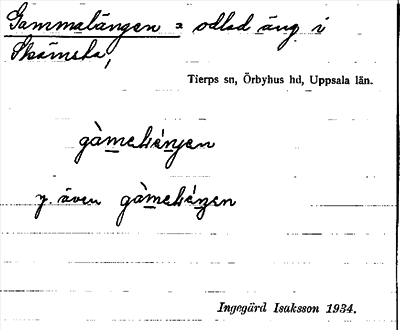 Gammalängen = odlad äng i
Skämsta,
Tierps sn, Örbyhus hd, Uppsala län.
y. även
Ingegärd Isaksson 1934.